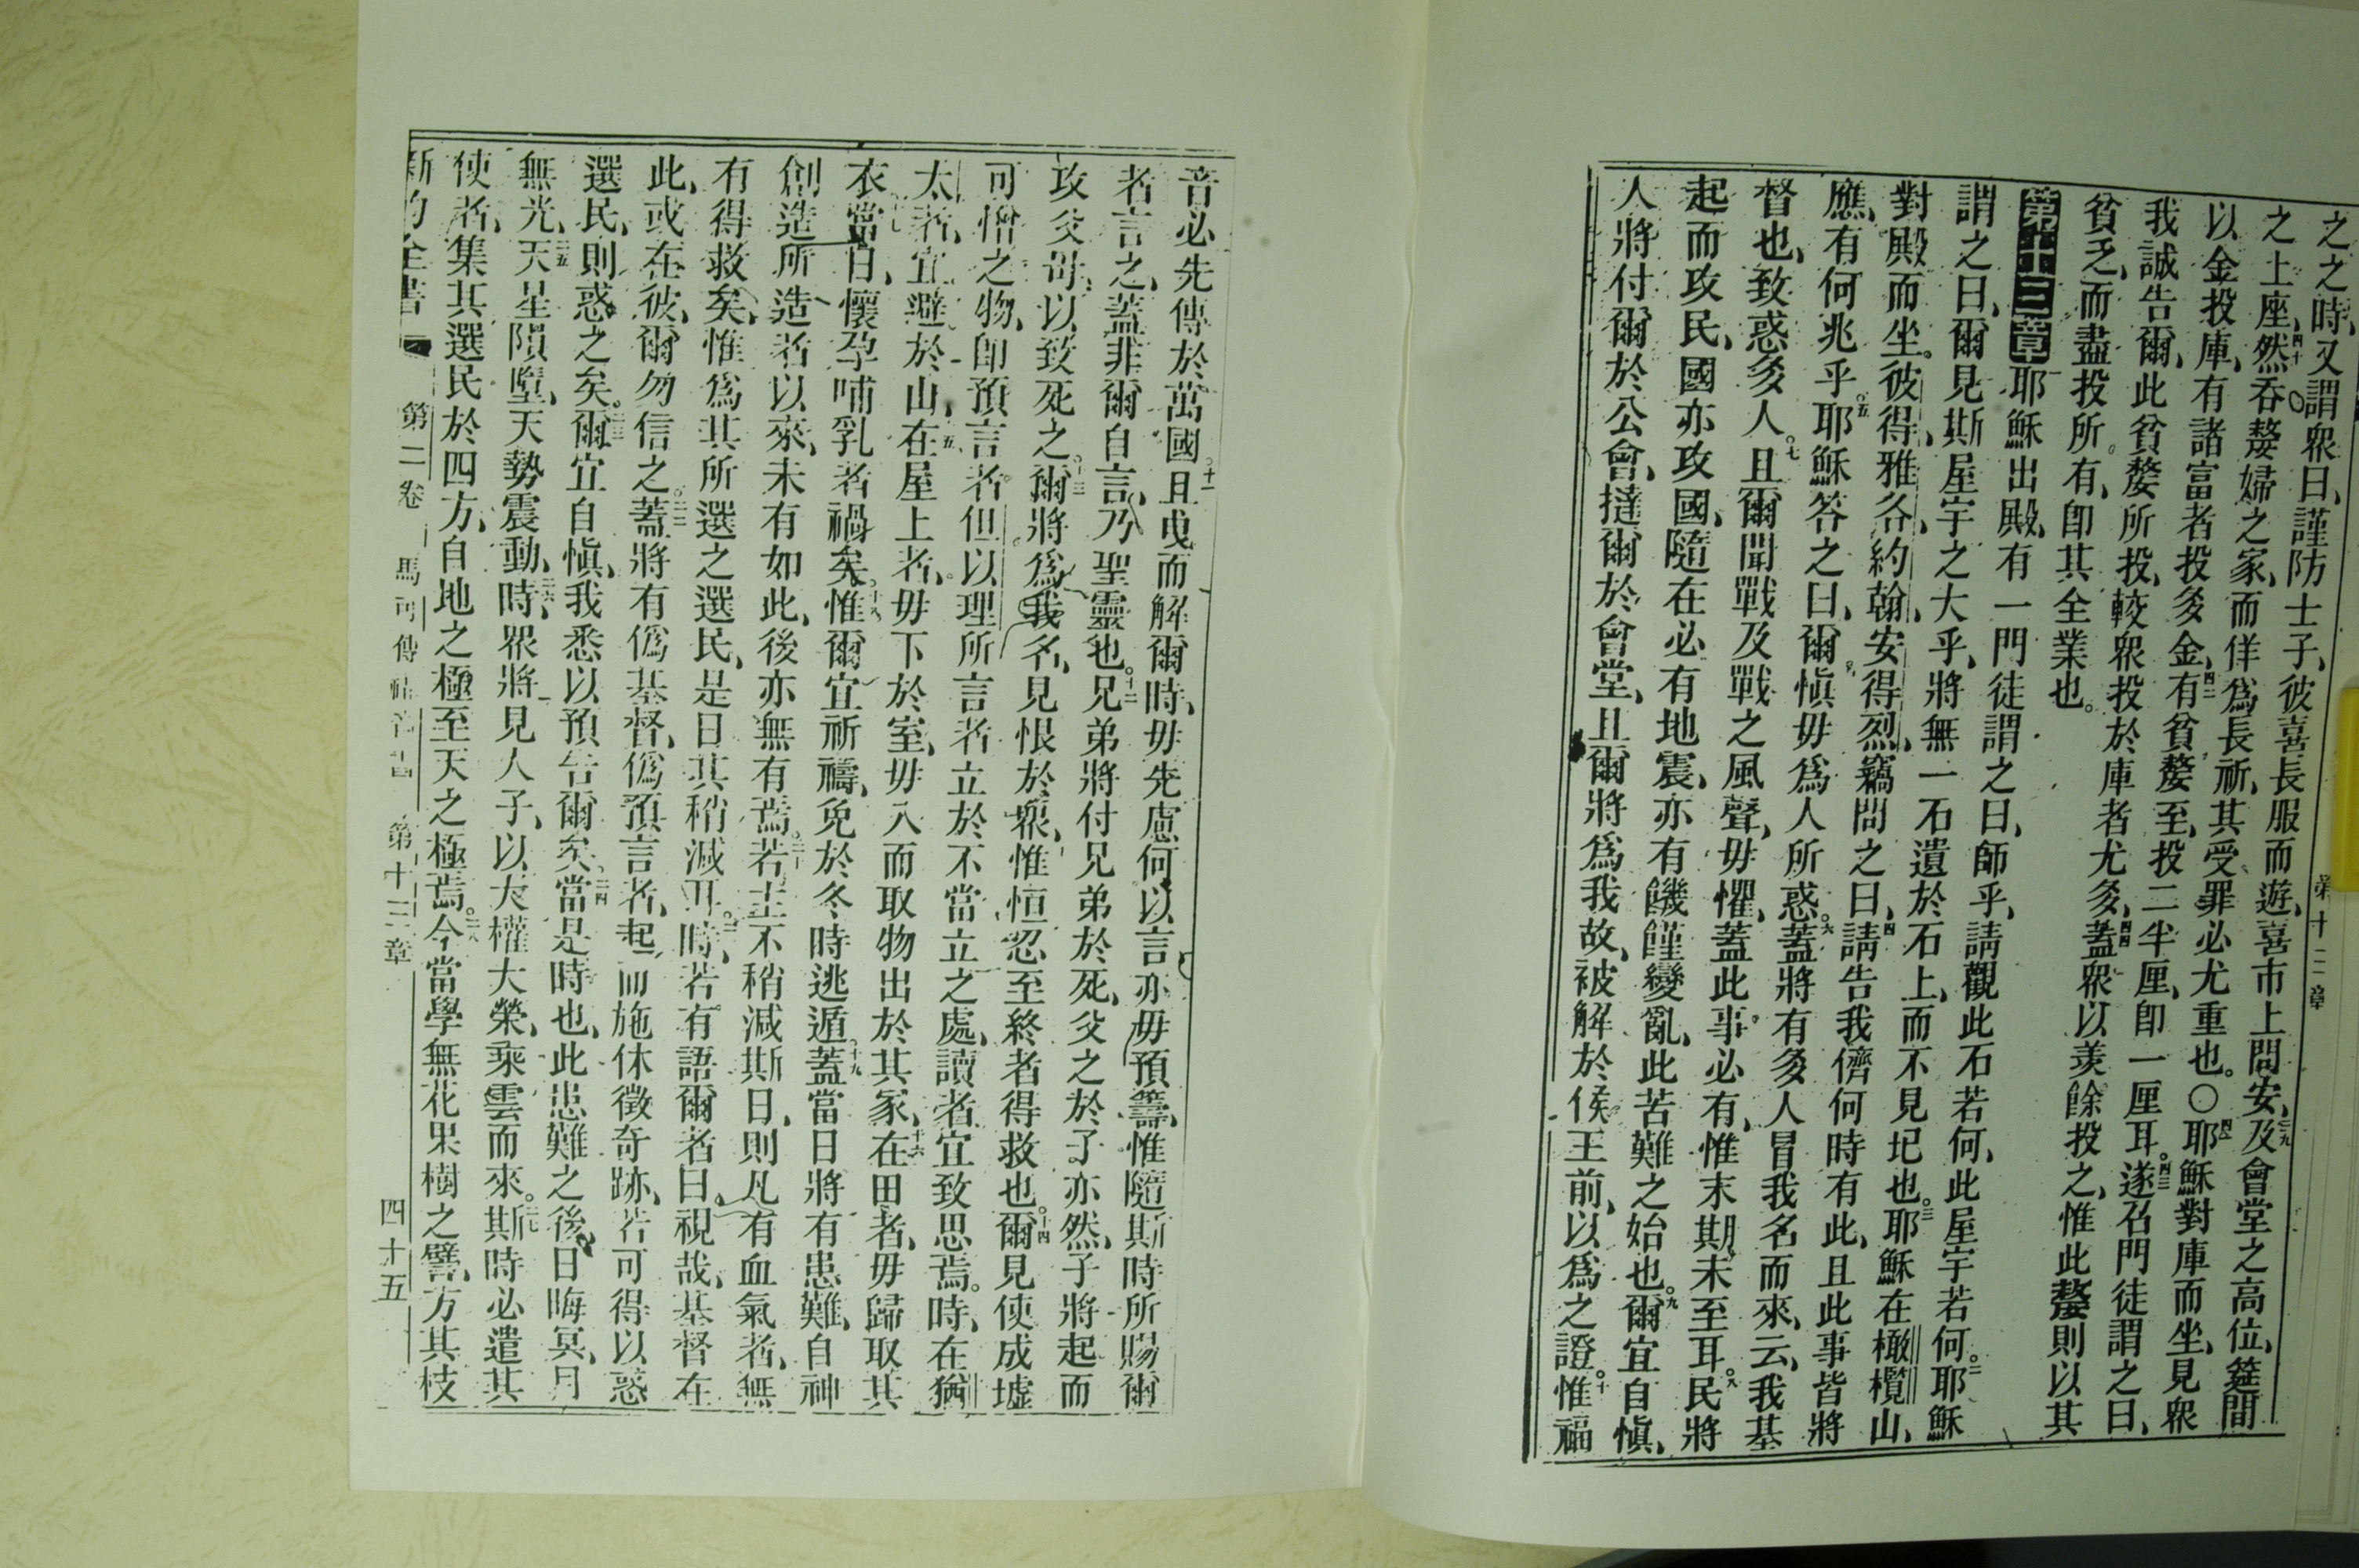 之之時、又謂衆曰、謹防士子、彼喜長服而遊、喜市上問安、三九及會堂之高位、筵間
之上座、四十然吞嫠婦之家、而佯爲長祈、其受罪必尤重也。○四一耶穌對庫而坐、見衆
以金投庫、有諸富者投多金、四二有貧嫠至、投二半厘、卽一厘耳。四三遂召門徒謂之曰、
我誠告爾、此貧嫠所投、較衆投於庫者尤多、四四蓋衆以羨餘投之、惟此嫠則以其
貧乏、而盡投所有、卽其全業也。
第十三章耶穌出殿、有一門徒謂之曰、師乎、請觀此石若何、此屋宇若何。二耶穌
謂之曰、爾見斯屋宇之大乎、將無一石遺於石上、而不見圮也。三耶穌在橄欖山、
對殿而坐。彼得、雅各、約翰、安得烈、竊問之曰、四請告我儕何時有此、且此事皆將
應、有何兆乎。五耶穌答之曰、爾愼毋爲人所惑。六蓋將有多人冒我名而來、云、我基
督也、致惑多人。七且爾聞戰及戰之風聲、毋懼、蓋此事必有、惟末期未至耳。八民將
起而攻民、國亦攻國、隨在必有地震、亦有饑饉變亂、此苦難之始也。九爾宜自愼、
人將付爾於公會、撻爾於會堂、且爾將爲我故、被解於侯王前、以爲之證。十惟福
第十二章
音必先傳於萬國。十一且曳而解爾時、毋先慮何以言、亦毋預籌、惟隨斯時所賜爾
者言之、蓋非爾自言、乃聖靈也。十二兄弟將付兄弟於死、父之於子亦然、子將起而
攻父母、以致死之。十三爾將爲我名、見恨於衆、惟恒忍至終者得救也。十四爾見使成墟
可憎之物、卽預言者但以理所言者、立於不當立之處、讀者宜致思焉。時、在猶
太者、宜避於山、十五在屋上者、毋下於室、毋入而取物出於其家、十六在田者、毋歸取其
衣、十七當日、懷孕哺乳者禍矣。十八惟爾宜祈禱、免於冬時逃遁、十九蓋當日將有患難、自神
創造所造者以來、未有如此、後亦無有焉。二十若主不稍減斯日、則凡有血氣者、無
有得救矣、惟爲其所選之選民、是日其稍減耳。二一時、若有語爾者曰、視哉、基督在
此、或在彼、爾勿信之。二二蓋將有僞基督、僞預言者、起而施休徵奇跡、若可得以惑
選民、則惑之矣。二三爾宜自愼、我悉以預告爾矣。二四當是時也、此患難之後、日晦冥、月
無光、二五天星隕墮、天勢震動、二六時、衆將見人子、以大權大榮、乘雲而來。二七斯時必遣其
使者、集其選民於四方、自地之極至天之極焉。二八今當學無花果樹之譬、方其枝
新約全書 第二卷 馬可傳福音書 第十三章 四十五